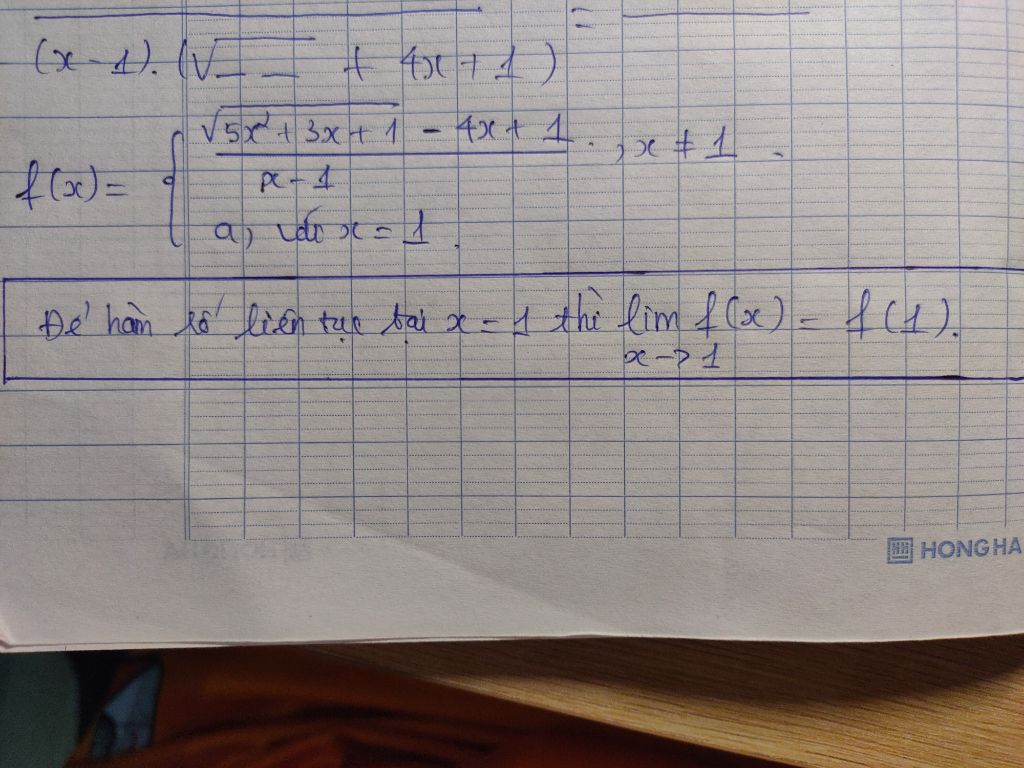 =
(x - 1). (√_ _ + 4x + 1)
f(x) = { √5x² + 3x + 1 - 4x + 1 , x ≠ 1
x - 1
a, với x = 1.
Để hàm số liên tục tại x = 1 thì lim f(x) = f(1).
x -> 1
HONG HA